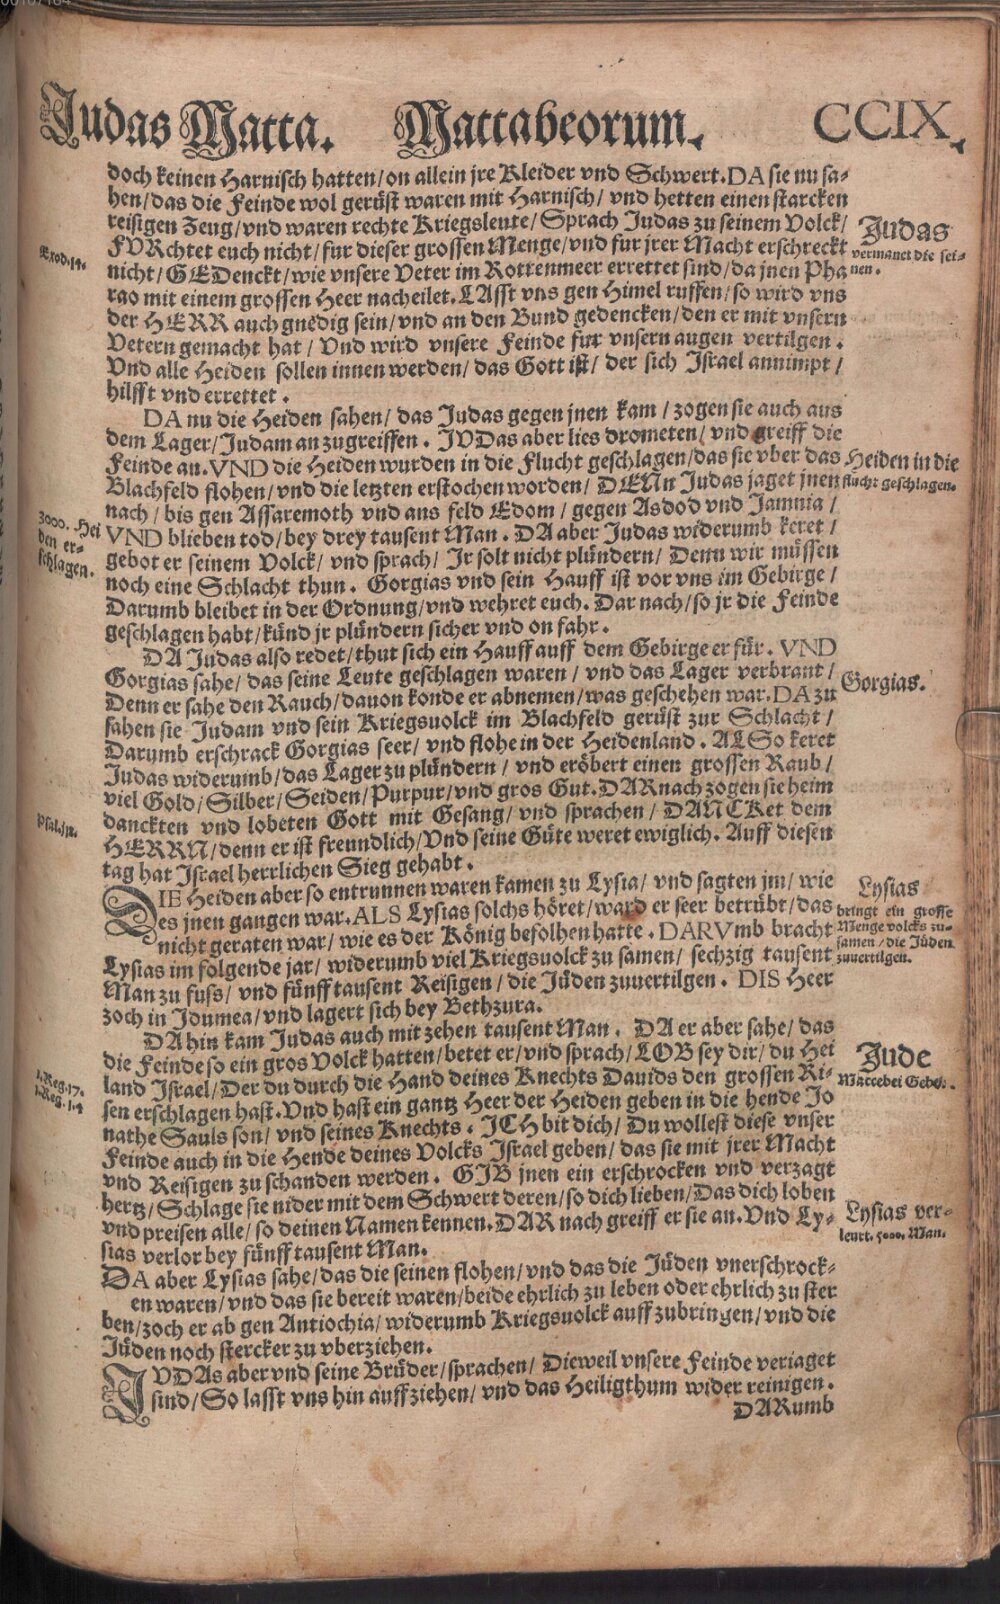 00107164
Judas Macca. Maccabeorum. CCIX.
doch keinen Harnisch hatten/on allein jre Kleider vnd Schwert. DA sie nu sa-
hen/das die Feinde wol gerüst waren mit Harnisch/vnd hetten einen starcken
reisigen Zeug/vnd waren rechte Kriegsleute/Sprach Judas zu seinem Volck/
FVRchtet euch nicht/fur dieser grossen Menge/vnd fur jrer Macht erschreckt
nicht/GEDenckt/wie vnsere Veter im Rottenmeer errettet sind/da jnen Pha
rao mit einem grossen Heer nacheilet. LAsst vns gen Himel ruffen/so wird vns
der HERR auch gnedig sein/vnd an den Bund gedencken/den er mit vnsern
Vetern gemacht hat/Vnd wird vnsere Feinde fur vnsern augen vertilgen.
Vnd alle Heiden sollen innen werden/das Gott ist/der sich Israel annimpt/
hilfft vnd errettet.
Judas
vermanet die sei-
nen.
Exod.14.
DA nu die Heiden sahen/das Judas gegen jnen kam/zogen sie auch aus
dem Lager/Judam an zugreiffen. JVDas aber lies drometen/vnd greiff die
Feinde an. VND die Heiden wurden in die Flucht geschlagen/das sie vber das
Blachfeld flohen/vnd die letzten erstochen worden/DENn Judas jaget jnen
nach/bis gen Assaremoth vnd ans feld Edom/gegen Asdod vnd Jamnia/
VND blieben tod/bey drey tausent Man. DA aber Judas widerumb keret/
gebot er seinem Volck/vnd sprach/Jr solt nicht plündern/Denn wir müssen
noch eine Schlacht thun. Gorgias vnd sein Hauff ist vor vns im Gebirge/
Darumb bleibet in der Ordnung/vnd wehret euch. Dar nach/so jr die Feinde
geschlagen habt/künd jr plündern sicher vnd on fahr.
Heiden in die
flucht geschlagen.
3000. Hei
den er-
schlagen.
DA Judas also redet/thut sich ein Hauff auff dem Gebirge er für. VND
Gorgias sahe/das seine Leute geschlagen waren/vnd das Lager verbrant/
Denn er sahe den Rauch/dauon konde er abnemen/was geschehen war. DA zu
sahen sie Judam vnd sein Kriegsuolck im Blachfeld gerüst zur Schlacht/
Darumb erschrack Gorgias seer/vnd flohe in der Heidenland. ALSo keret
Judas widerumb/das Lager zu plündern/vnd eröbert einen grossen Raub/
viel Gold/Silber/Seiden/Purpur/vnd gros Gut. DARnach zogen sie heim
danckten vnd lobeten Gott mit Gesang/vnd sprachen/DANCKet dem
HERRN/denn er ist freundlich/Vnd seine Güte weret ewiglich. Auff diesen
tag hat Israel herrlichen Sieg gehabt.
Gorgias.
DIE Heiden aber so entrunnen waren kamen zu Lysia/vnd sagten jm/wie
es jnen gangen war. ALS Lysias solchs höret/ward er seer betrübt/das
nicht geraten war/wie es der König befolhen hatte. DARVmb bracht
Lysias im folgende jar/widerumb viel Kriegsuolck zu samen/sechzig tausent
Man zu fuss/vnd fünff tausent Reisigen/die Jüden zuuertilgen. DIS Heer
zoch in Idumea/vnd lagert sich bey Bethzura.
Lysias
bringt ein grosse
Menge volcks zu-
samen/die Jüden
zuuertilgen.
DA hin kam Judas auch mit zehen tausent Man. DA er aber sahe/das
die Feinde so ein gros Volck hatten/betet er/vnd sprach/LOB sey dir/du Hei
land Israel/Der du durch die Hand deines Knechts Dauids den grossen Ri-
sen erschlagen hast. Vnd hast ein gantz Heer der Heiden geben in die hende Jo
nathe Sauls son/vnd seines Knechts. ICH bit dich/Du wollest diese vnser
Feinde auch in die Hende deines Volcks Israel geben/das sie mit jrer Macht
vnd Reisigen zu schanden werden. GIB jnen ein erschrocken vnd verzagt
hertz/Schlage sie nider mit dem Schwert deren/so dich lieben/Das dich loben
vnd preisen alle/so deinen Namen kennen. DAR nach greiff er sie an. Vnd Ly-
sias verlor bey fünff tausent Man.
Jude
Maccebei Gebet.
1.Reg.17.
1.Reg.14
Lysias ver-
leurt. 5000. Man.
DA aber Lysias sahe/das die seinen flohen/vnd das die Jüden vnerschrock-
en waren/vnd das sie bereit waren/beide ehrlich zu leben oder ehrlich zu ster
ben/zoch er ab gen Antiochia/widerumb Kriegsuolck auff zubringen/vnd die
Jüden noch stercker zu vberziehen.
JVDAs aber vnd seine Brüder/sprachen/Dieweil vnsere Feinde veriaget
sind/So lasst vns hin auffziehen/vnd das Heiligthum wider reinigen.
DARumb